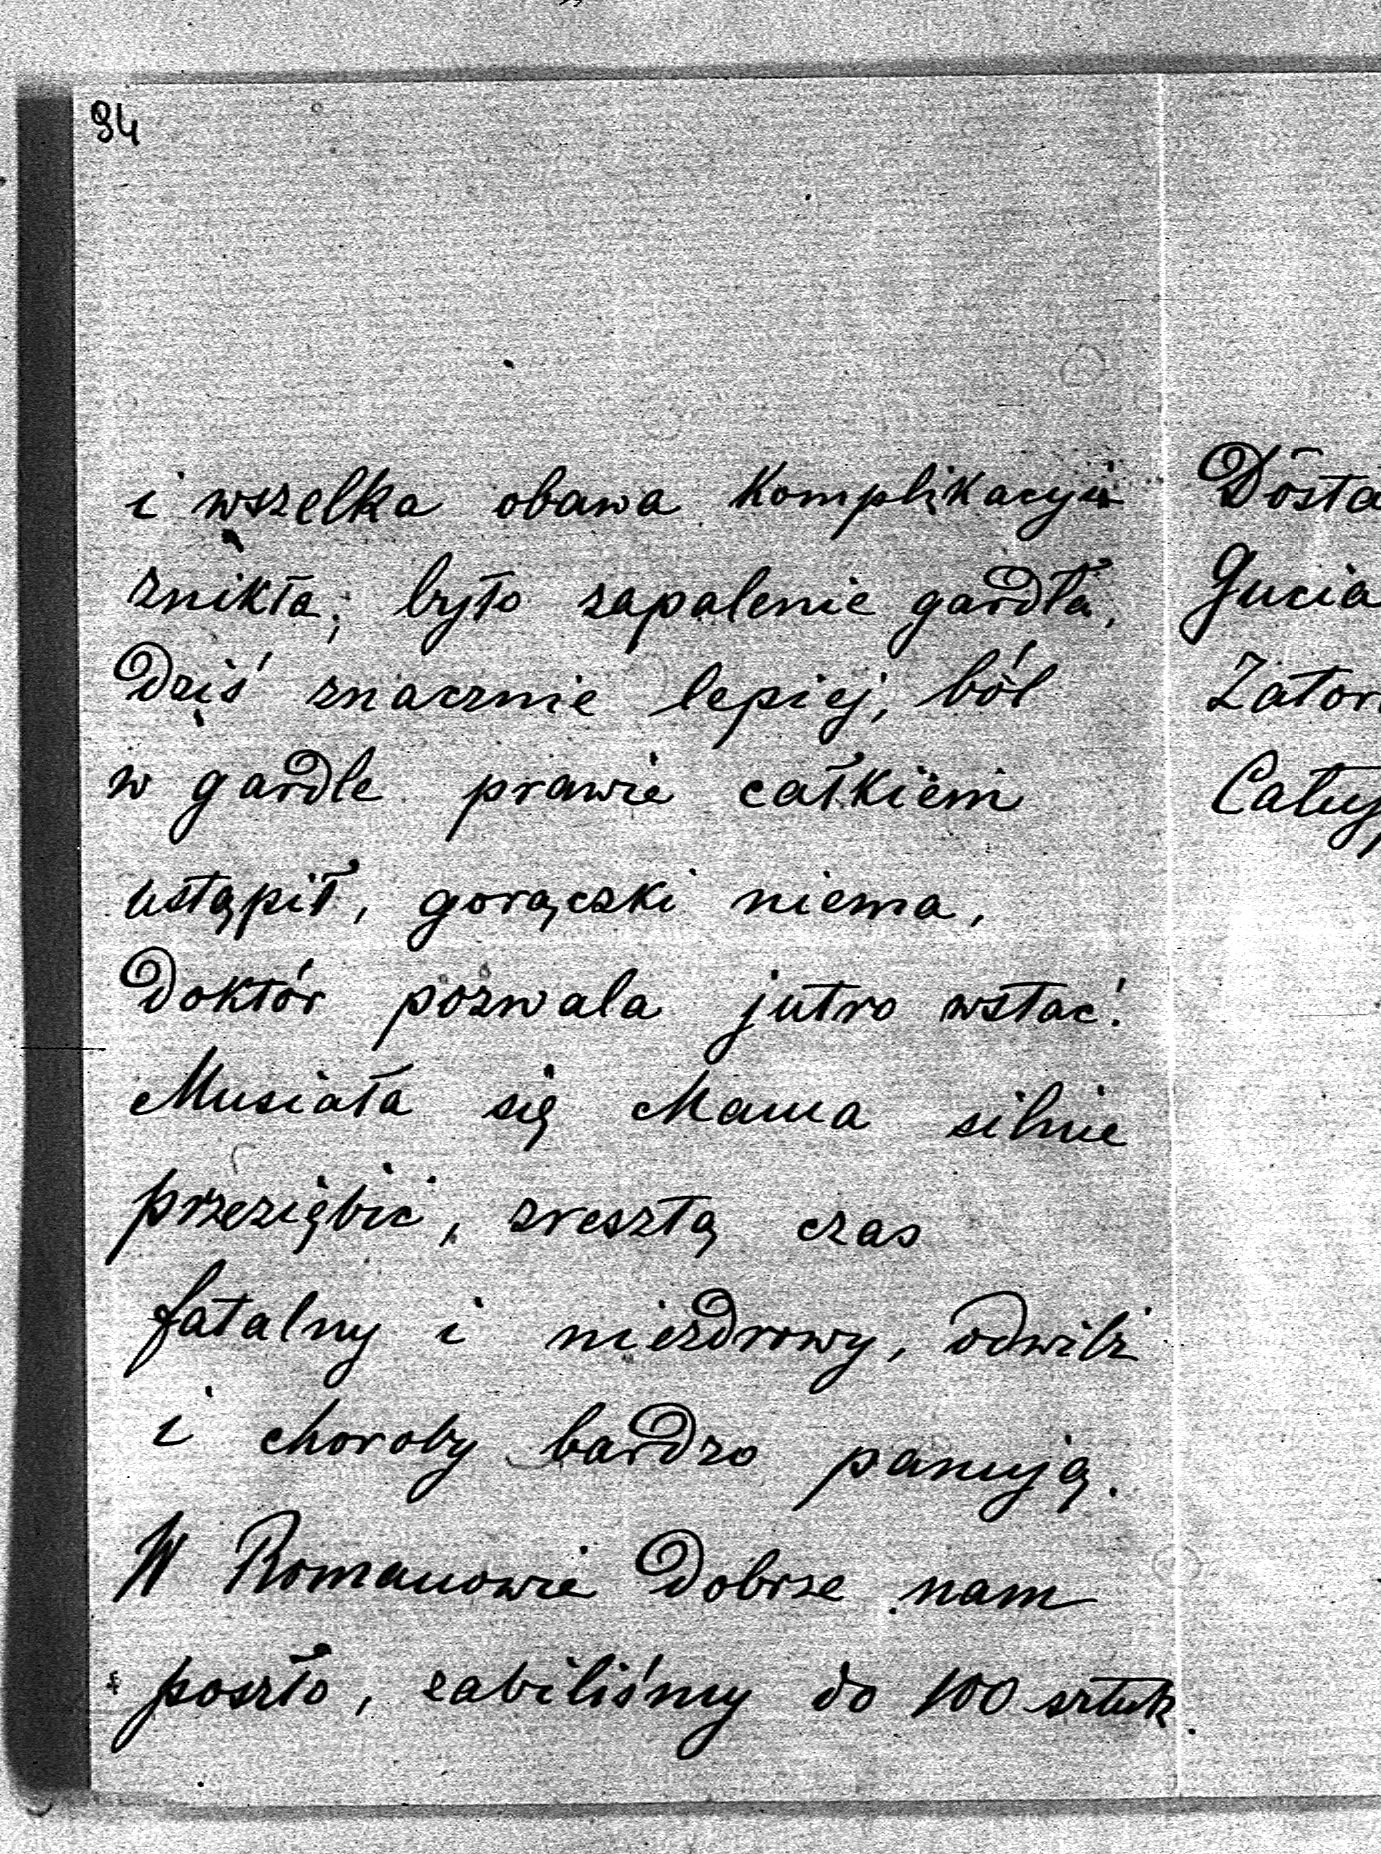 94
i wszelka obawa komplikacyi
znikła; było zapalenie gardła,
Dziś znacznie lepiej, ból
w gardle prawie całkiem
ustąpił, gorączki niema,
Doktór pozwala jutro wstać.
Musiała się Mama silnie
przeziębić, zresztą czas
fatalny i niezdrowy, odwilż
i choroby bardzo panują.
W Romanowie dobrze nam
poszło, zabiliśmy do 100 sztuk.
Dosta
Gucia
Zator
Całuj